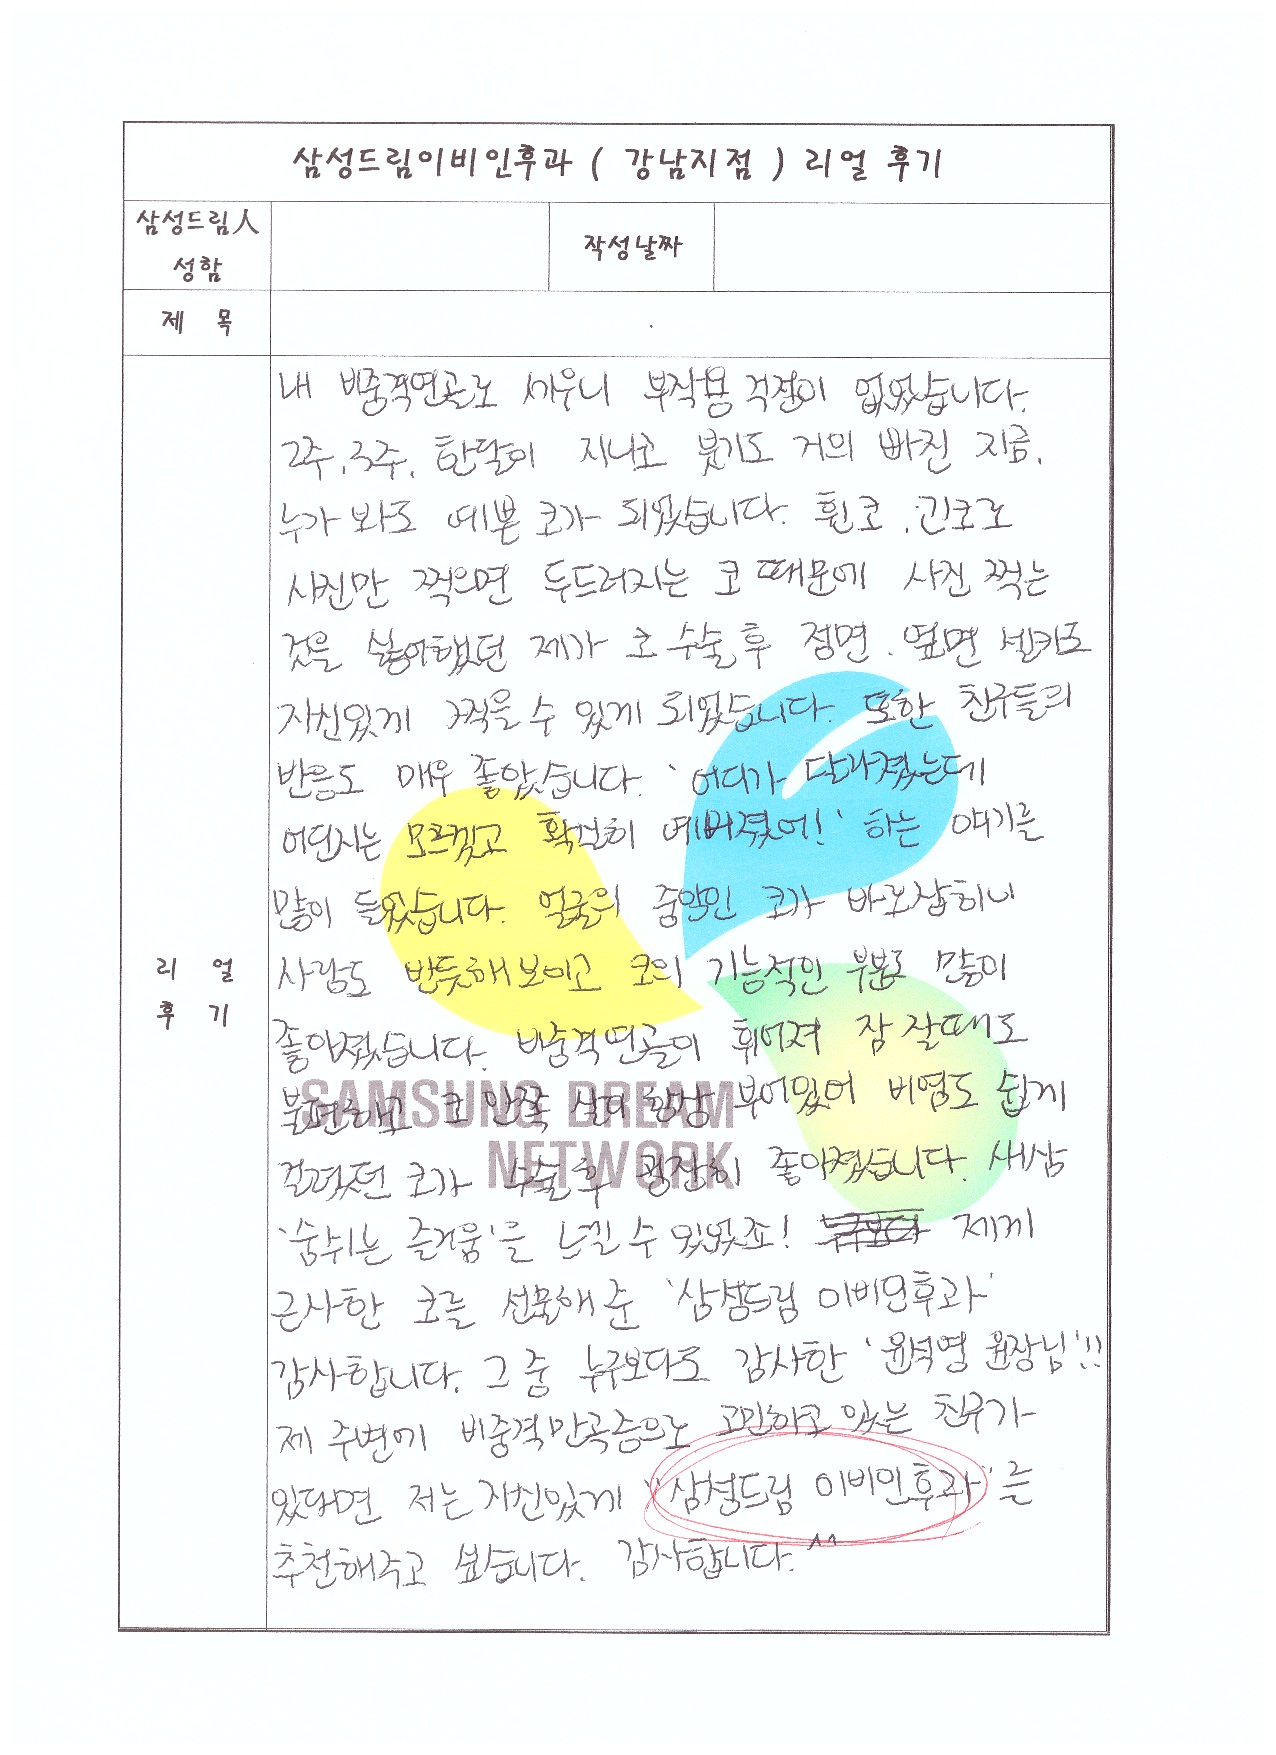 삼성드림이비인후과 ( 강남지점 ) 리얼 후기
삼성드림人
성함
작성날짜
제 목
리 얼
후 기
내 비중격연골로 세우니 부작용 걱정이 없었습니다.
2주, 3주, 한달이 지나고 붓기도 거의 빠진 지금,
누가 봐도 예쁜 코가 되었습니다. 휜코, 긴코로
사진만 찍으면 두드러지는 코 때문에 사진 찍는
것을 싫어했던 제가 코 수술 후 정면, 옆면 셀카도
자신있게 찍을 수 있게 되었습니다. 또한 친구들의
반응도 매우 좋았습니다. '어디가 달라졌는데
어딘지는 모르겠고 확실히 예뻐졌어!' 하는 얘기를
많이 들었습니다. 얼굴의 중앙인 코가 바로잡히니
사람도 반듯해보이고 코의 기능적인 부분도 많이
좋아졌습니다. 비중격연골이 휘어져 잠 잘때도
불편하고 코 안쪽 살이 항상 부어있어 비염도 쉽게
걸렸던 코가 수술 후 굉장히 좋아졌습니다. 새삼
'숨쉬는 즐거움'을 느낄 수 있었죠! 제게
근사한 코를 선물해 준 '삼성드림 이비인후과'
감사합니다. 그 중 누구보다도 감사한 '윤석영 원장님'!!
제 주변에 비중격만곡증으로 고민하고 있는 친구가
있다면 저는 자신있게 "삼성드림 이비인후과"를
추천해주고 싶습니다. 감사합니다.^^
SAMSUNG DREAM
NETWORK